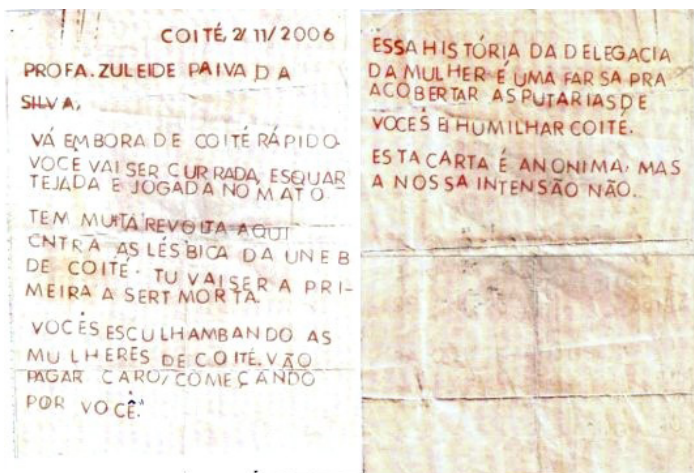 COITÉ, 2/ 11/2006
PROFA. ZULEIDE PAIVA DA
SILVA,
VÁ EMBORA DE COITÉ RÁPIDO
VOCE VAI SER CURRADA, ESQUAR
TEJADA E JOGADA NO MATO.
TEM MUITA REVOLTA AQUI
CNTRA AS LÉSBICA DA UNEB
DE COITÉ. TU VAI SER A PRI-
MEIRA A SERT MORTA.
VOCÊS ESCULHAMBANDO AS
MULHERES DE COITÉ. VÃO
PAGAR CARO, COMEÇANDO
POR VOCÊ.
ESSA HISTÓRIA DA DELEGACIA
DA MULHER É UMA FARSA PRA
ACOBERTAR AS PUTARIAS DE
VOCÊS E HUMILHAR COITÉ.
ESTA CARTA É ANONIMA, MAS
A NOSSA INTENSÃO NÃO.